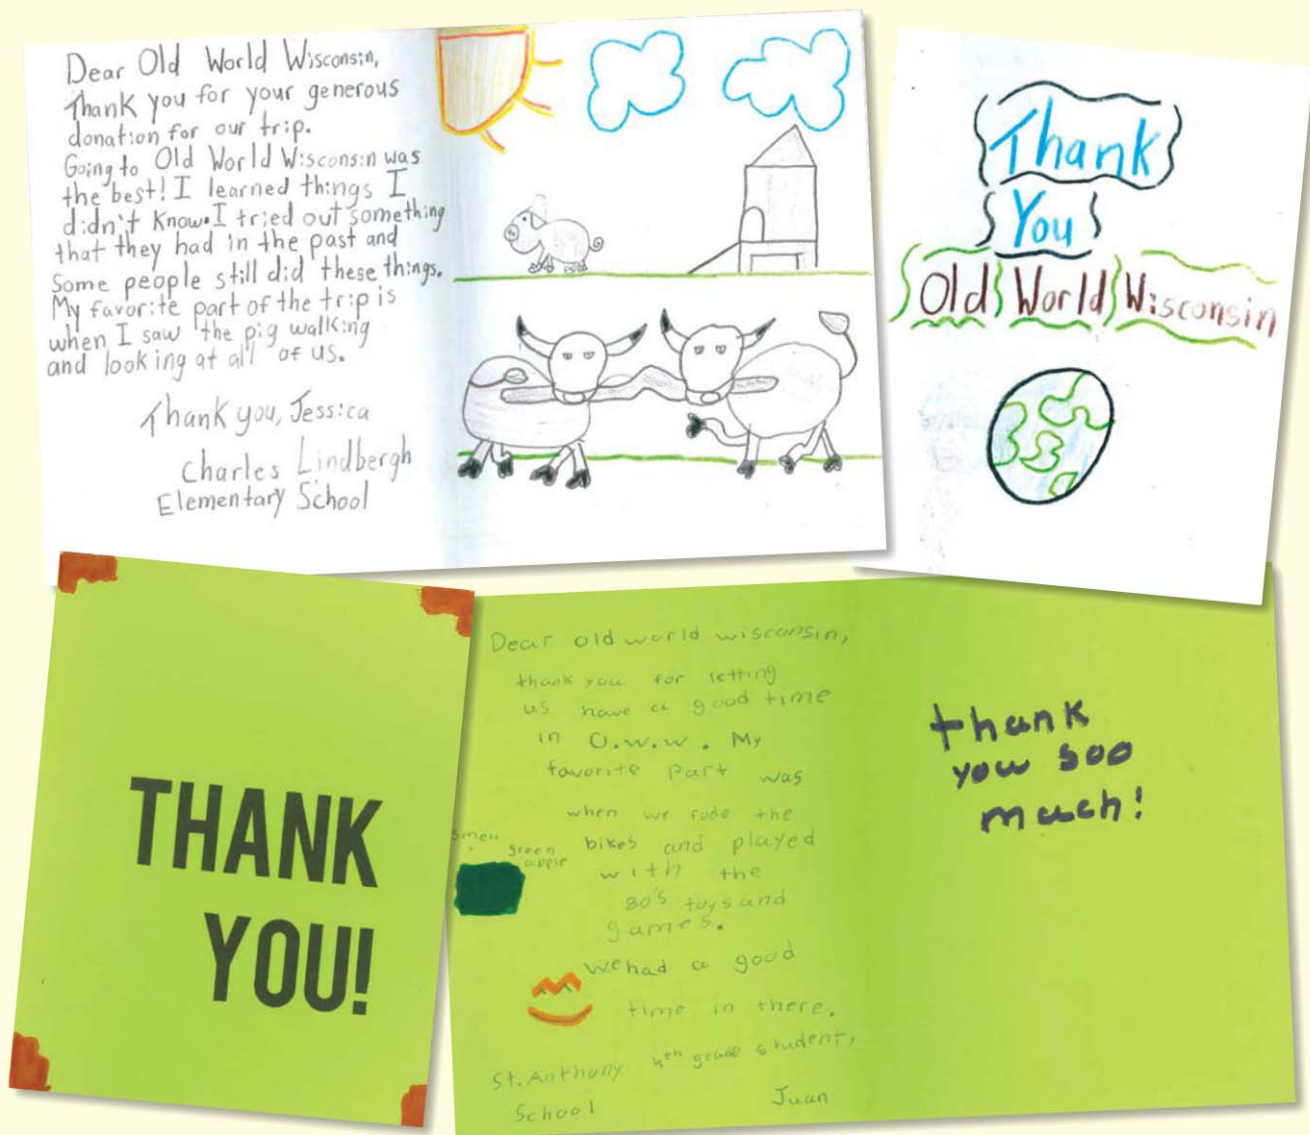 Dear Old World Wisconsin,
Thank you for your generous
donation for our trip.
Going to Old World Wisconsin was
the best! I learned things I
didn't know. I tried out something
that they had in the past and
Some people still did these things.
My favorite part of the trip is
when I saw the pig walking
and looking at all of us.
Thank you, Jessica
Charles Lindbergh
Elementary School
Thank
You
Old World Wisconsin
THANK
YOU!
Dear old world wisconsin,
thank you for letting
us have a good time
in O.W.W. My
favorite Part was
when we rode the
bikes and played
with the
80's toys and
games.
we had a good
time in there.
4th grade student,
Juan
St. Anthony
School
smell
green
apple
thank
you soo
much!